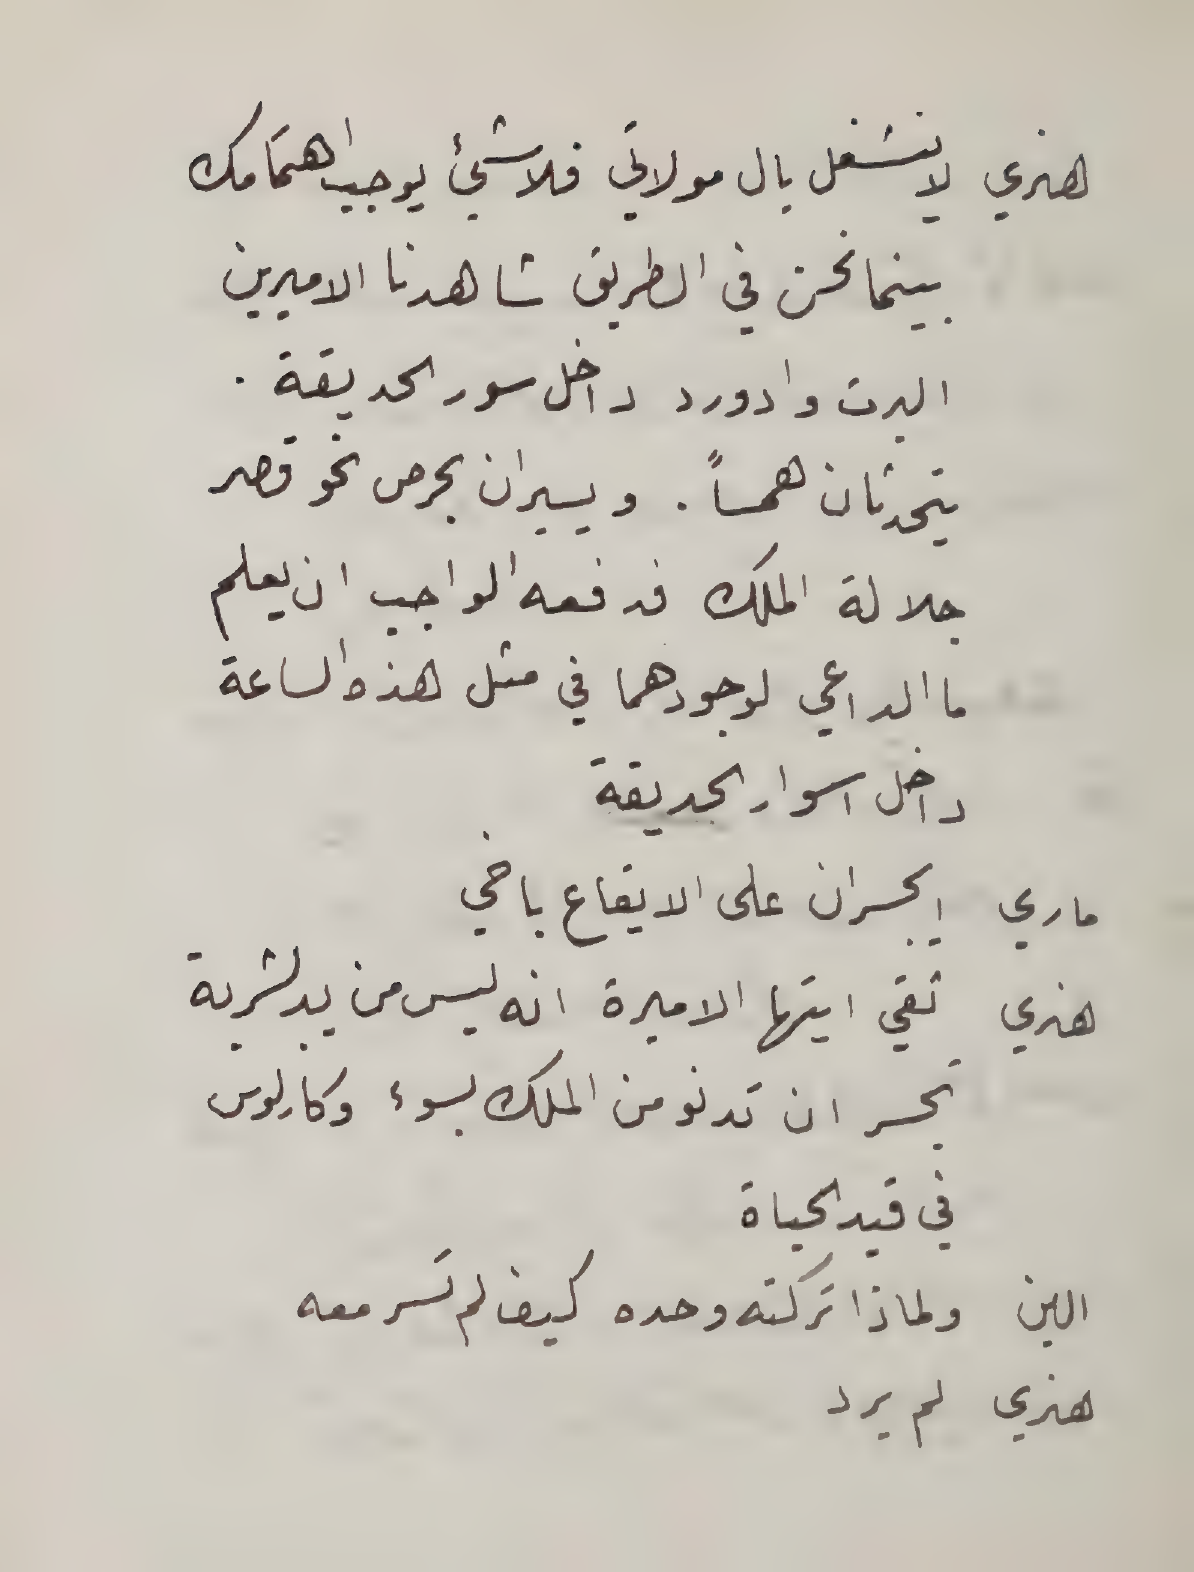 هنري لا ينشغل بال مولاتي فلا شئ يوجب اهتمامك
بينما نحن في الطريق شاهدنا الاميرين
البرت وادورد داخل سور الحديقة .
يتحدثان همساً . ويسيران بحرص نحو قصر
جلالة الملك فدفعه الواجب ان يعلم
ما الداعي لوجودهما في مثل هذه الساعة
داخل اسوار الحديقة
ماري ايجسران على الايقاع باخي
هنري ثقي ايتها الاميرة انه ليس من يد بشرية
تجسر ان تدنو من الملك بسوء وكارلوس
في قيد الحياة
الين ولماذا تركته وحده كيف لم تسر معه
هنري لم يرد